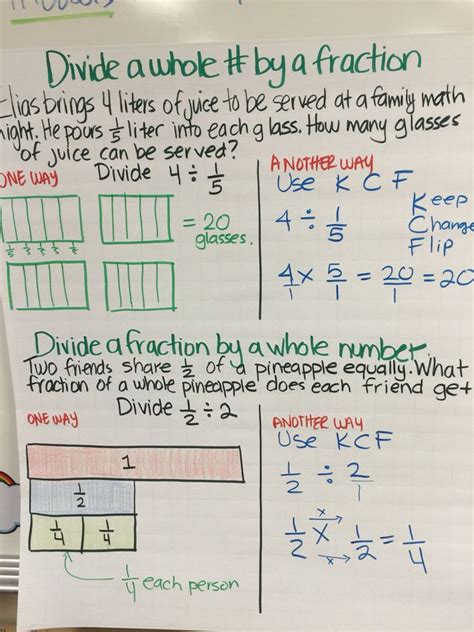 Divide a whole # by a fraction
Elias brings 4 liters of juice to be served at a family math
night. He pours 1/5 liter into each glass. How many glasses
of juice can be served?
ONE WAY
Divide 4 ÷ 1/5
1/5 1/5 1/5 1/5 1/5
= 20
glasses.
ANOTHER WAY
Use K C F
4 ÷ 1/5
Keep
Change
Flip
4/1 × 5/1 = 20/1 = 20
Divide a fraction by a whole number.
Two friends share 1/2 of a pineapple equally. What
fraction of a whole pineapple does each friend get
Divide 1/2 ÷ 2
ONE WAY
1
1/2
1/4 1/4
1/4 each person
ANOTHER WAY
Use KCF
1/2 ÷ 2/1
x
1/2 X 1/2 = 1/4
x